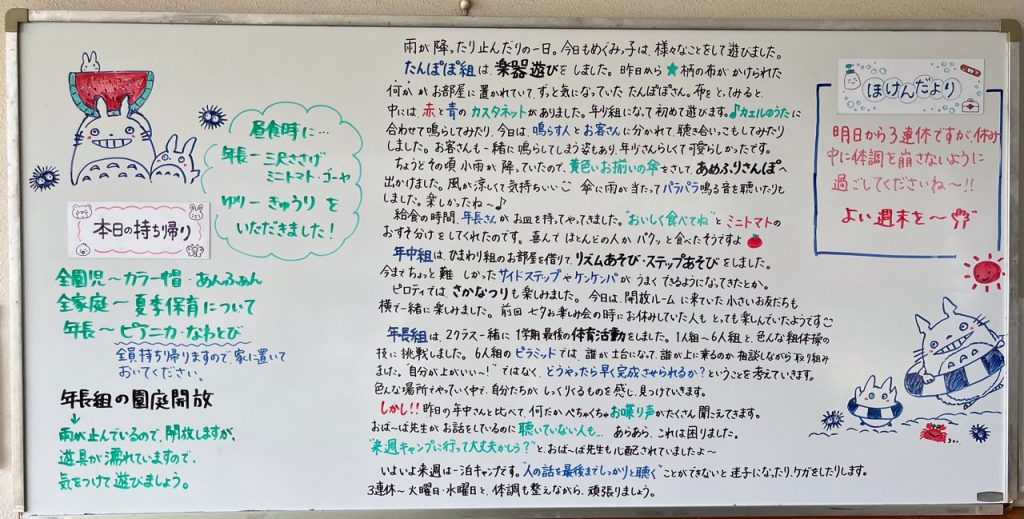 昼食時に…
年長ー三尺ささげ
ミニトマト・ゴーヤ
ゆりーきゅうり を
いただきました!
本日の持ち帰り
全園児〜カラー帽・あんふぁん
全家庭ー夏季保育について
年長〜ピアニカ・なわとび
全員持ち帰りますので家に置いて
おいてください。
年長組の園庭開放
↓
雨が止んでいるので、開放しますが、
遊具が濡れていますので、
気をつけて遊びましょう。
雨が降ったり止んだりの一日。今日もめぐみっ子は、様々なことをして遊びました。
たんぽぽ組は、楽器遊びをしました。昨日から★柄の布がかけられた
何かがお部屋に置かれていて、ずっと気になっていたたんぽぽさん。布をとってみると
中には、赤と青のカスタネットがありました。年少組になって初めて遊びます。♪カエルのうたに
合わせて鳴らしてみたり、今日は、鳴らす人とお客さんに分かれて、聴き合いっこもしてみたり
しました。お客さんも一緒に鳴らしてしまう姿もあり、年少さんらしくて可愛らしかったです。
ちょうどその頃小雨が降っていたので、黄色いお揃いの傘をさして、あめふりさんぽへ
出かけました。風が涼しくて気持ちいい 傘に雨が当たってパラパラ鳴る音を聴いたりも
しました。楽しかったね〜♪
給食の時間、年長さんがお皿を持ってやってきました。"おいしく食べてね"とミニトマトの
おすそ分けをしてくれたのです。喜んでほとんどの人がパクッと食べたそうですよ
年中組は、ひまわり組のお部屋を借りて、リズムあそび・ステップあそびをしました。
今までちょっと難しかったサイドステップやケンケンパがうまくできるようになってきたとか。
ピロティでは、さかなつりも楽しみました。今日は、開放ルームに来ていた小さいお友だちも
横で一緒に楽しみました。前回七夕お楽しみ会の時にお休みしていた人もとても楽しんでいたようです
年長組は、2クラス一緒に1学期最後の体育活動をしました。1人組〜6人組と、色んな組体操の
技に挑戦しました。6人組のピラミッドでは、誰が土台になって、誰が上に乗るのか相談しながら取り組み
ました。"自分が上がいい〜!"ではなく、どうやったら早く完成させられるか?ということを考えていきます。
色んな場所でやっていく中で、自分たちがしっくりくるものを感じ、見つけていきます。
しかし!!昨日の年中さんと比べて、何だかぺちゃくちゃお喋り声がたくさん聞こえてきます。
おばーば先生がお話をしているのに聴いていない人も… あらあら、これは困りました。
"来週キャンプに行って大丈夫かしら?"と、おばーば先生も心配されていましたよ〜
いよいよ来週は一泊キャンプです。"人の話を最後までしっかりと聴く"ことができないと迷子になったり、ケガをしたりします。
3連休〜火曜日・水曜日と、体調も整えながら、頑張りましょう。
ほけんだより
明日から3連休ですが、休み
中に体調を崩さないように
過ごしてくださいね〜!!
よい週末を〜